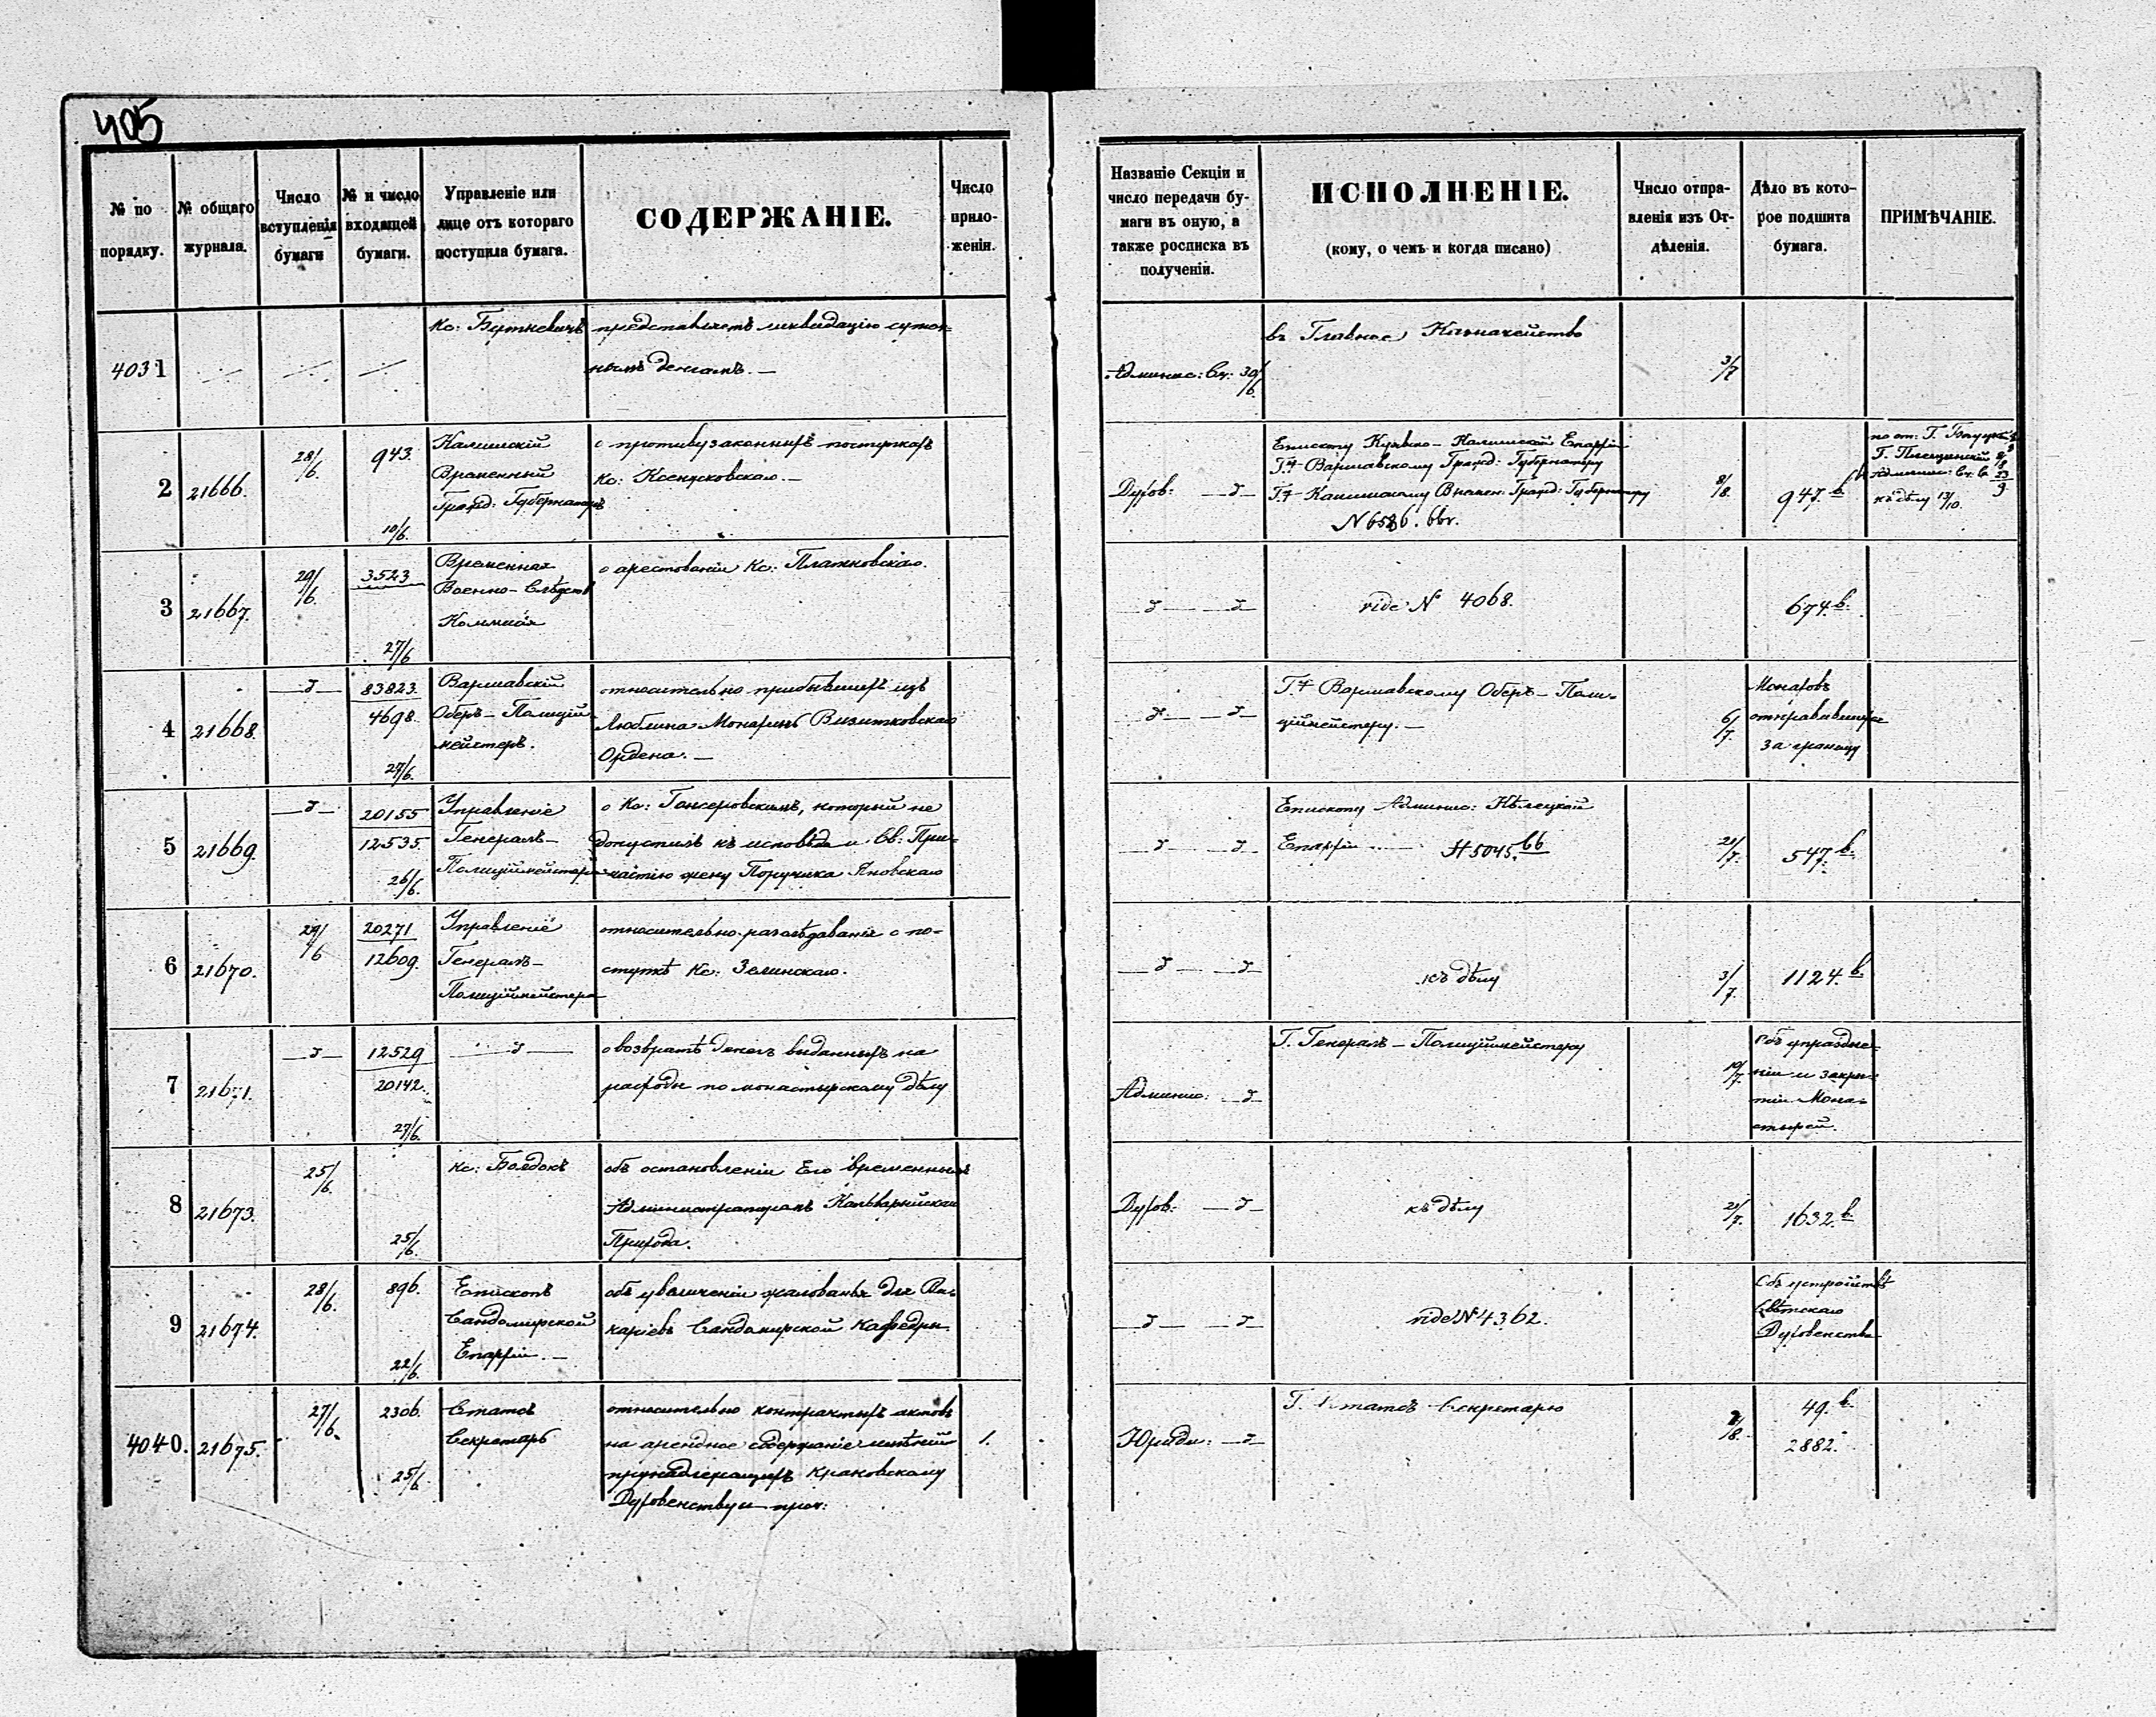 405
№ по порядку.
№ общаго журнала.
Число вступленія бумаги
№ и число входящей бумаги.
Управленіе или лице отъ котораго поступила бумага.
СОДЕРЖАНІЕ.
Число приложеніи.
Названіе Секціи и число передачи бумаги въ оную, а также росписка въ полученіи.
ИСПОЛНЕНІЕ.
(кому, о чемъ и когда писано)
Число отправленія изъ Отдѣленія.
Дѣло въ которое подшита бумага.
ПРИМѢЧАНІЕ.
4031
Кс:
представляетъ ликвидацію суточ-
нымъ деньгамъ. —
Админис: Сч: 30/6
въ Главное Казначейство
3/7
2
21666.
28/6.
943.
10/6.
Калишскій
Временный
Гражд: Губернаторъ
о противузаконныхъ поступкахъ
Кс: Ксенжковскаго. —
Духов: —〃—
Епископу Куявско-Калишской Епархіи
Г.ну Варшавскому Гражд: Губернатору
Г.ну Калишскому Времен: Гражд: Губернатору
N 6586. 66г.
8/8.
947. в.
къ дѣлу 13/10.
3
21667.
29/6.
3523
27/6
Временная
Военно-Слѣдств
Коммисія
о арестованіи Кс: Платковскаго.
—〃— —〃—
vide N° 4068.
674. в.
4
21668.
—〃—
83823.
4698.
27/6.
Варшавскій
Оберъ-Полицій-
мейстеръ.
относительно прибывшихъ изъ
Люблина Монахинь Визитковскаго
Ордена. —
—〃— —〃—
Г.ну Варшавскому Оберъ-Поли-
ційместеру. —
6/7.
Монаховъ
отправившихся
за границу
5
21669.
—〃—
20155
12535.
26/6.
Управленіе
Генералъ-
Полиційместера
о Кс: Гонсеровскимъ, который не
допустилъ къ исповѣди и Св: При-
частію жену Поручика Яновскаго
—〃— —〃—
Епископу Админис: Кѣлецкой
Епархіи N 5045. 66
21/7.
547. в.
6
21670.
29/6
20271
12609.
Управленіе
Генералъ-
Полиційместера
относительно разслѣдованія о по-
ступкѣ Кс: Зелинскаго.
—〃— —〃—
къ дѣлу
3/7.
1124. в.
7
21671.
—〃—
12529
20142.
27/6.
—〃—
о возвратѣ денегъ выданныхъ на
расходы по монастырскому дѣлу
Админис: —〃—
Г. Генералъ-Полиційместеру
19/7.
Объ упраздне-
ніи и закры-
тіи Мона-
стырей.
8
21673.
25/6.
25/6.
Кс: Болдокъ
объ остановленіи Его временнымъ
Администраторомъ Кальварійскаго
Прихода.
Духов: —〃—
къ дѣлу
21/7.
1632. в.
9
21674.
28/6.
896.
22/6.
Епископъ
Сандомирской
Епархіи. —
объ увеличеніи жалованья для Ви-
каріевъ Сандомирской Кафедры.
—〃— —〃—
vide N° 4362.
Объ устройствѣ
Свѣтскаго
Духовенства
4040.
21675.
27/6.
2306.
25/6.
Статсъ
Секретарь
относительно контрактыхъ актовъ
на арендное содержаніе имѣній
принадлежащихъ Краковскому
Духовенству и проч:
1.
Юриди: —〃—
Г. Статсъ-Секретарю
49. в.
2882.